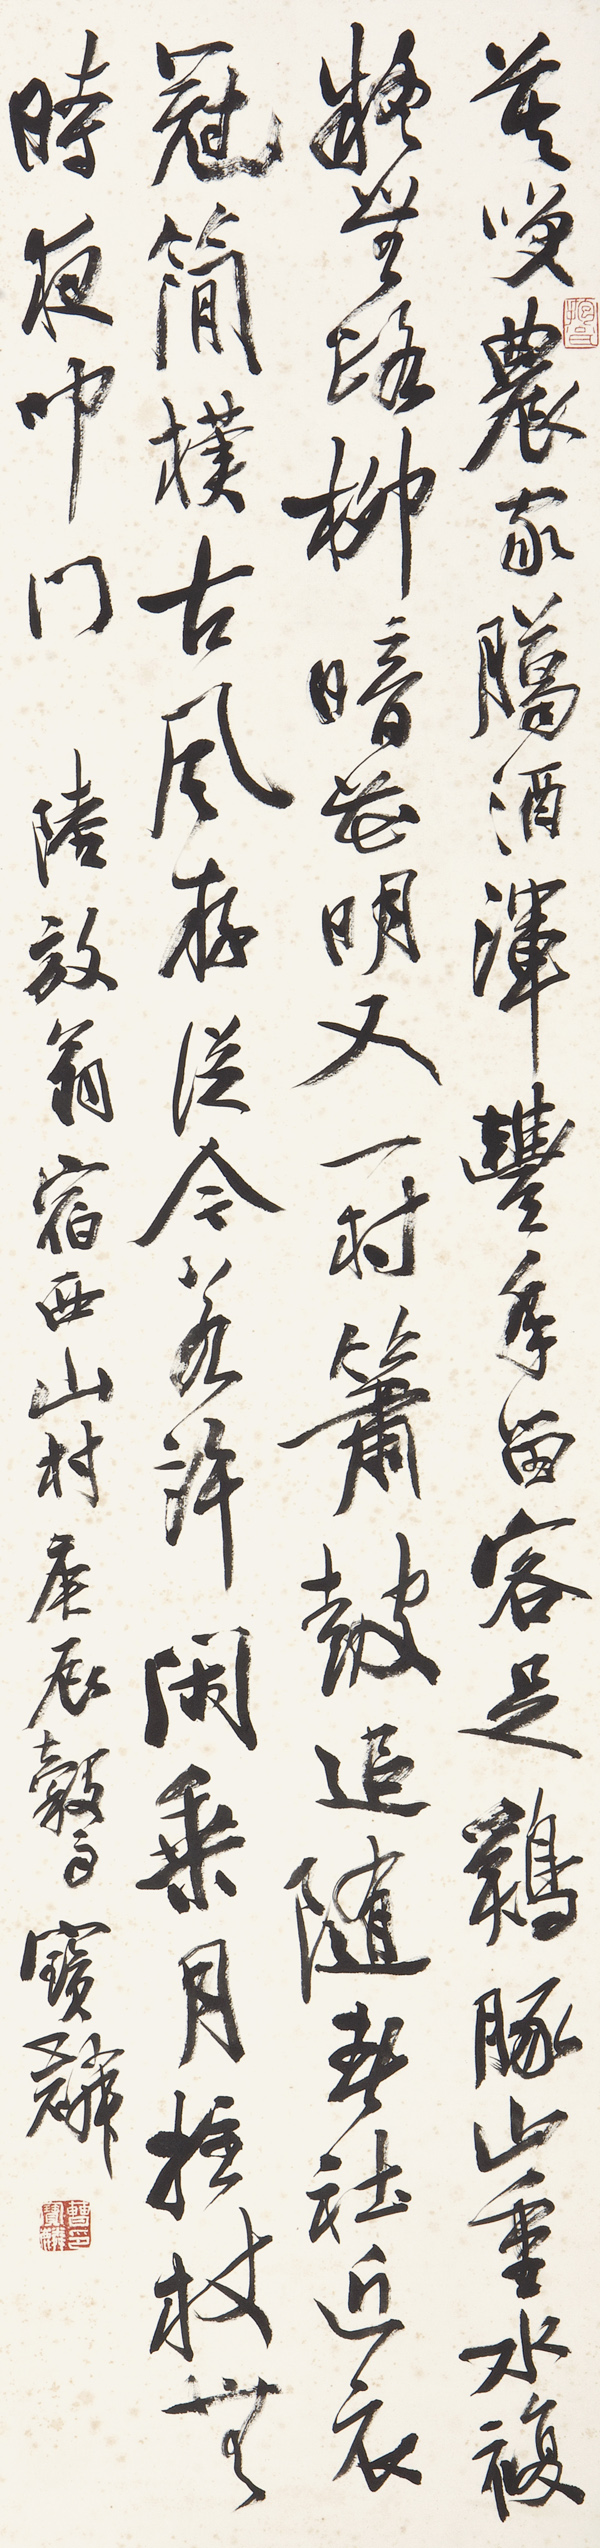 莫笑農家臘酒渾豐年留客足鷄豚山重水複
疑無路柳暗花明又一村簫鼓追隨春社近衣
冠簡樸古風存從今若許閑乘月拄杖無
時夜叩門 陸放翁宿西山村 庚辰穀雨 寶麟
曹寶麟印